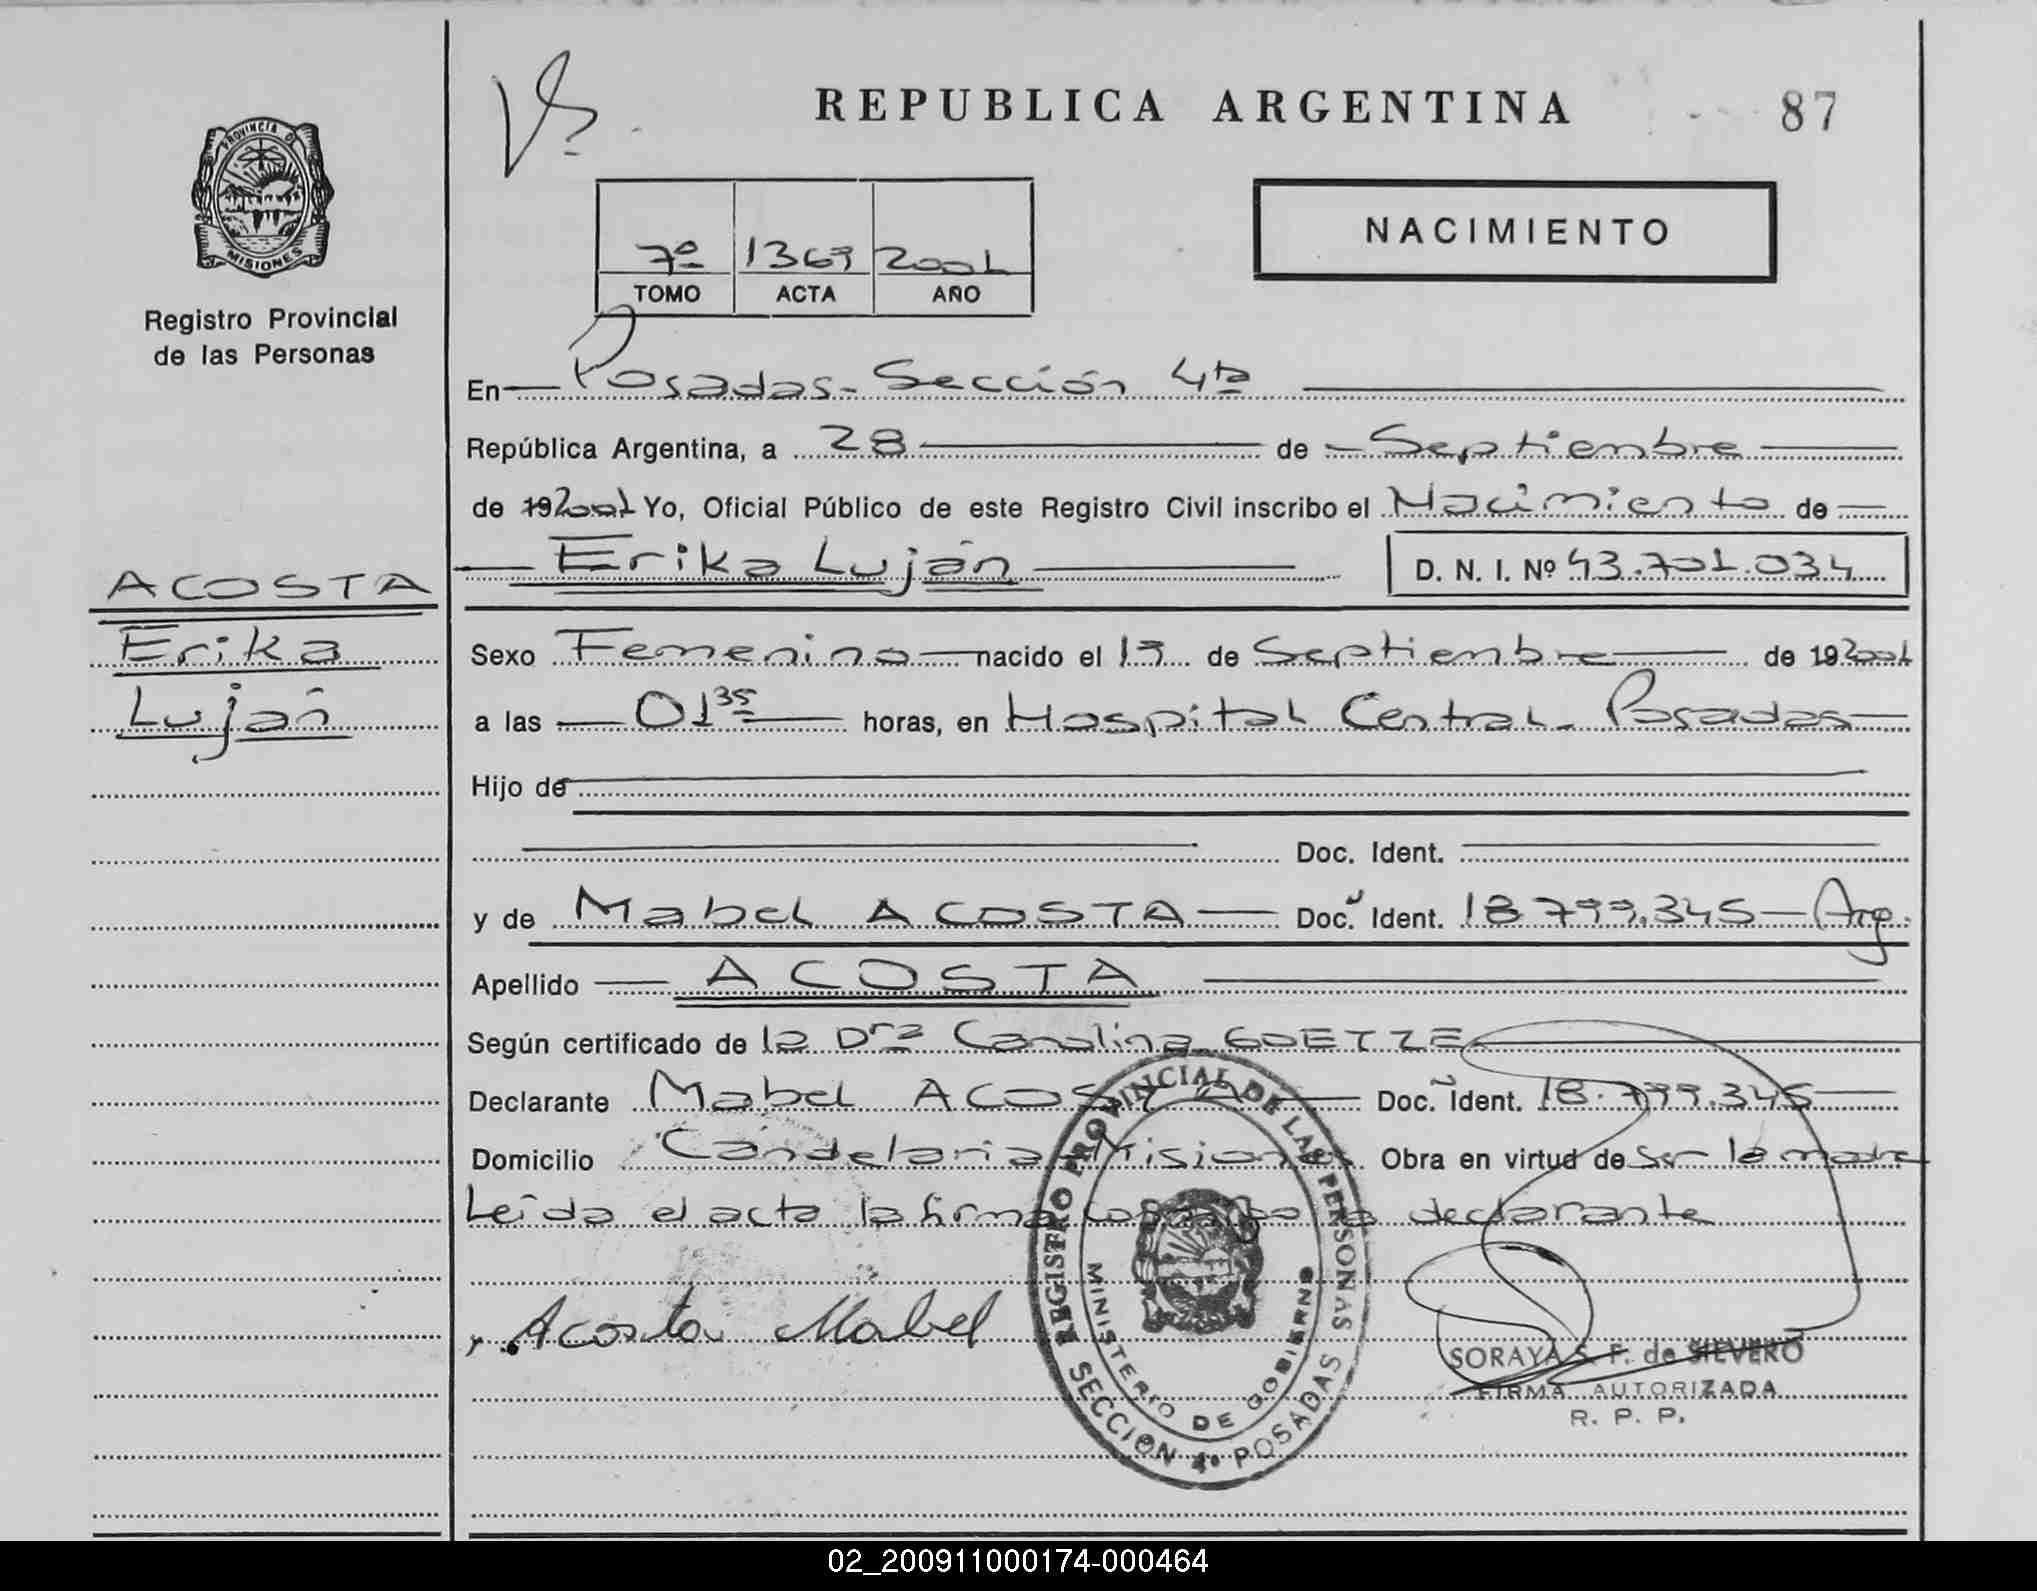 REPUBLICA ARGENTINA
87
PROVINCIA DE
MISIONES
Registro Provincial
de las Personas
7º 1369 2001
TOMO ACTA AÑO
NACIMIENTO
En Posadas - Sección 4ta
República Argentina, a 28 de Septiembre
de 192001 Yo, Oficial Público de este Registro Civil inscribo el Nacimiento de
Erika Luján D. N. I. Nº 43.701.034
ACOSTA
Erika
Luján
Sexo Femenino nacido el 19 de Septiembre de 192001
a las 01 35 horas, en Hospital Central - Posadas
Hijo de
Doc. Ident.
y de Mabel ACOSTA Doc. Ident. 18.799.345 - Arg.
Apellido ACOSTA
Según certificado de la Dra Carolina GOETZE
Declarante Mabel ACOSTA Doc. Ident. 18.799.345
Domicilio Candelaria Misiones Obra en virtud de ser la madre
Leida el acta la firma conmigo la declarante
Acosta Mabel
REGISTRO PROVINCIAL DE LAS PERSONAS
MINISTERIO DE GOBIERNO
SECCION 4º POSADAS
SORAYA S. F. de SILVERO
FIRMA AUTORIZADA
R. P. P.
02_200911000174-000464